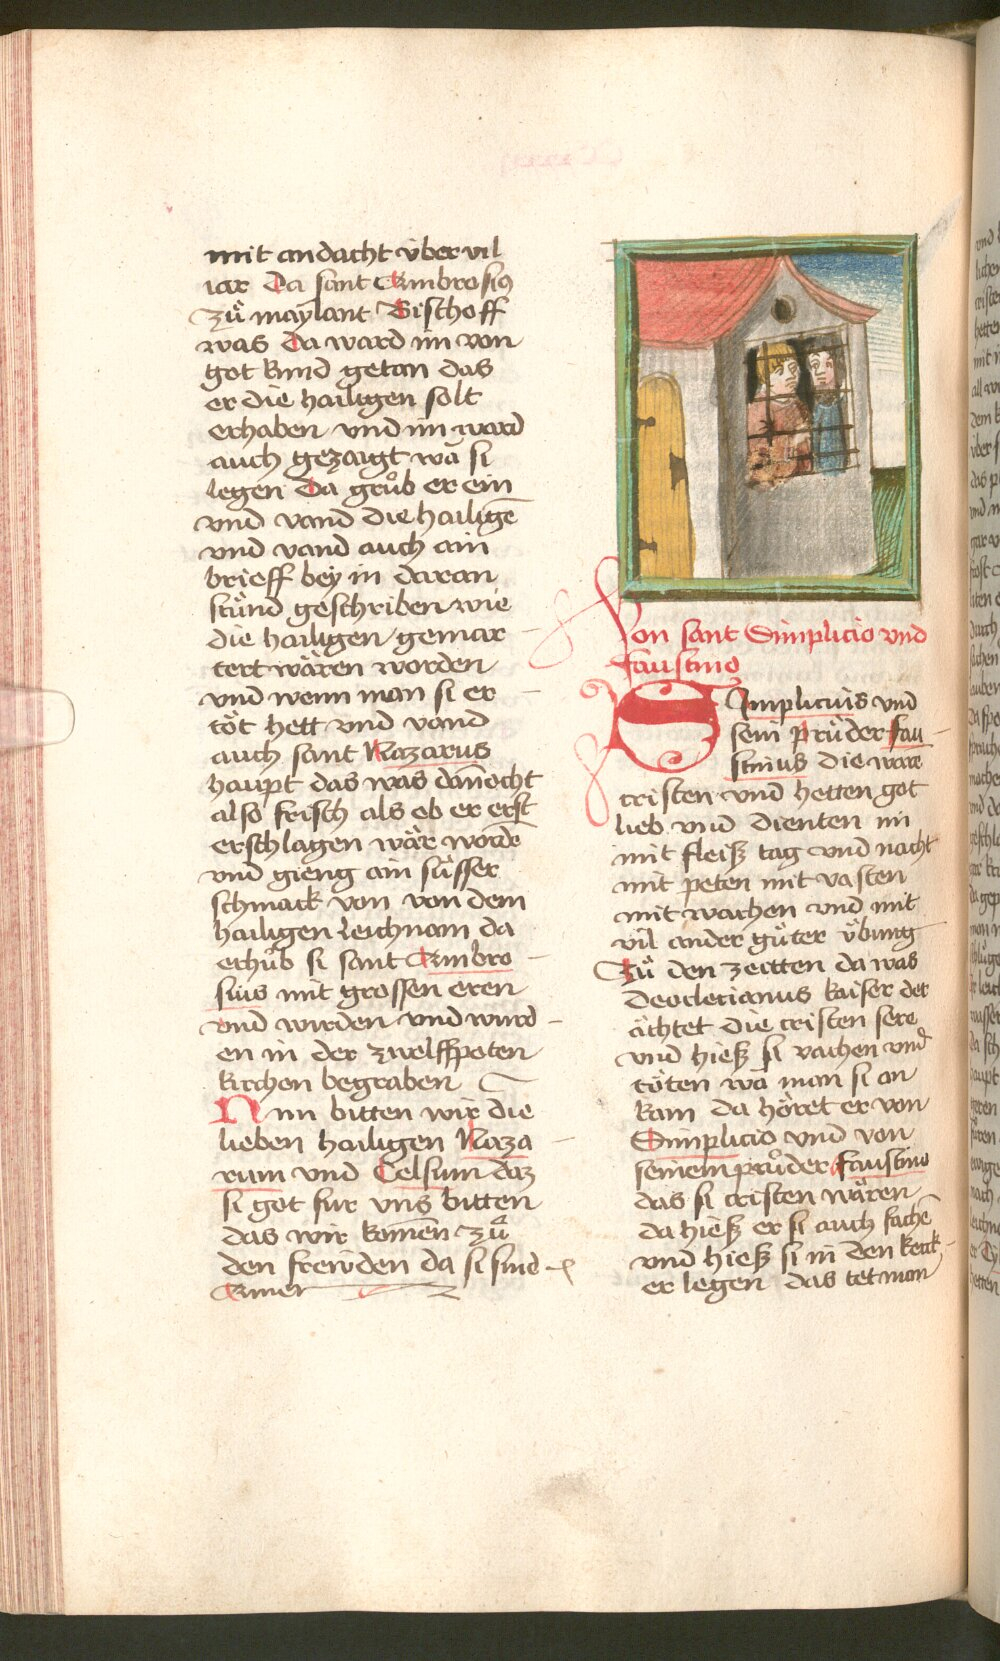 mit andacht über vil
iar Da sant Ambrosiꝯ
zů maylant Bischoff
was Da ward im von
got kund getan das
er die hailigen solt
erhaben vnd im ward
auch gezaigt wa si
legen Da grůb er ein
vnd vand die hailigē
vnd vand auch ain
brieff bey in daran
stůnd geschriben wie
die hailigen gemar
tert wären worden
vnd wenn man si er
töt hett vnd vand
auch sant Nazarus
haupt das was dānocht
also frisch als ob er erst
erschlagen wär wordē
vnd gieng ain süsser
schmack von von dem
hailigen leichnam da
erhůb si sant Ambro
sius mit grossen eren
vnd wirden vnd wurd
en in der zwelffpoten
kirchen begraben
Nun bitten wir die
lieben hailigen Naza
rum vnd Celsum daz
si got fur vns bitten
das wir komen zů
den freẅden da si sind
Amen
Von sant Simplicio vnd
faustino
Simplicius vnd
sein průder fau
stinus die ware
cristen vnd hetten got
lieb vnd dienten im
mit fleiß tag vnd nacht
mit peten mit vasten
mit wachen vnd mit
vil ander gůter übung
Zů den zeitten da was
Deocletianus kaiser der
ächtet die cristen sere
vnd hieß si vachen vnd
töten wa man si an
kam da höret er von
Simplicio vnd von
seinem průder faustino
das si cristen wären
da hieß er si auch fachē
vnd hieß si in den keck
er legen das tet man